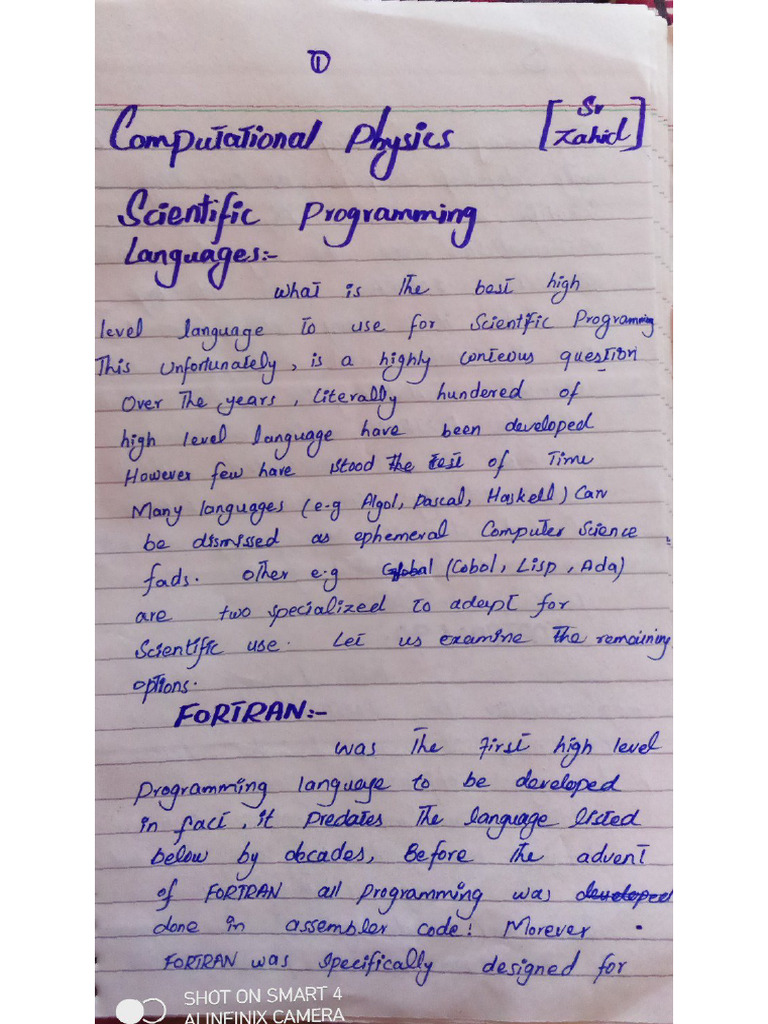 1
Computational Physics [Sr Zahid]
Scientific Programming
Languages:-
What is the best high
level language to use for Scientific Programming
This Unfortunately, is a highly conteous question
Over The years, Literally hundered of
high level language have been developed
However few have stood the test of Time
Many languages (e-g Algol, Pascal, Haskell) Can
be dismissed as ephemeral Computer Science
fads. other e.g Global (Cobol, Lisp, Ada)
are two specialized to adapt for
Scientific use. Let us examine The remaining
options.
FORTRAN:-
was The first high level
Programming language to be developed
in fact, it Predates The language listed
below by decades, Before The advent
of FORTRAN all Programming was developed
done in assembler code! Morever
FORTRAN was specifically designed for
SHOT ON SMART 4
AI INFINIX CAMERA